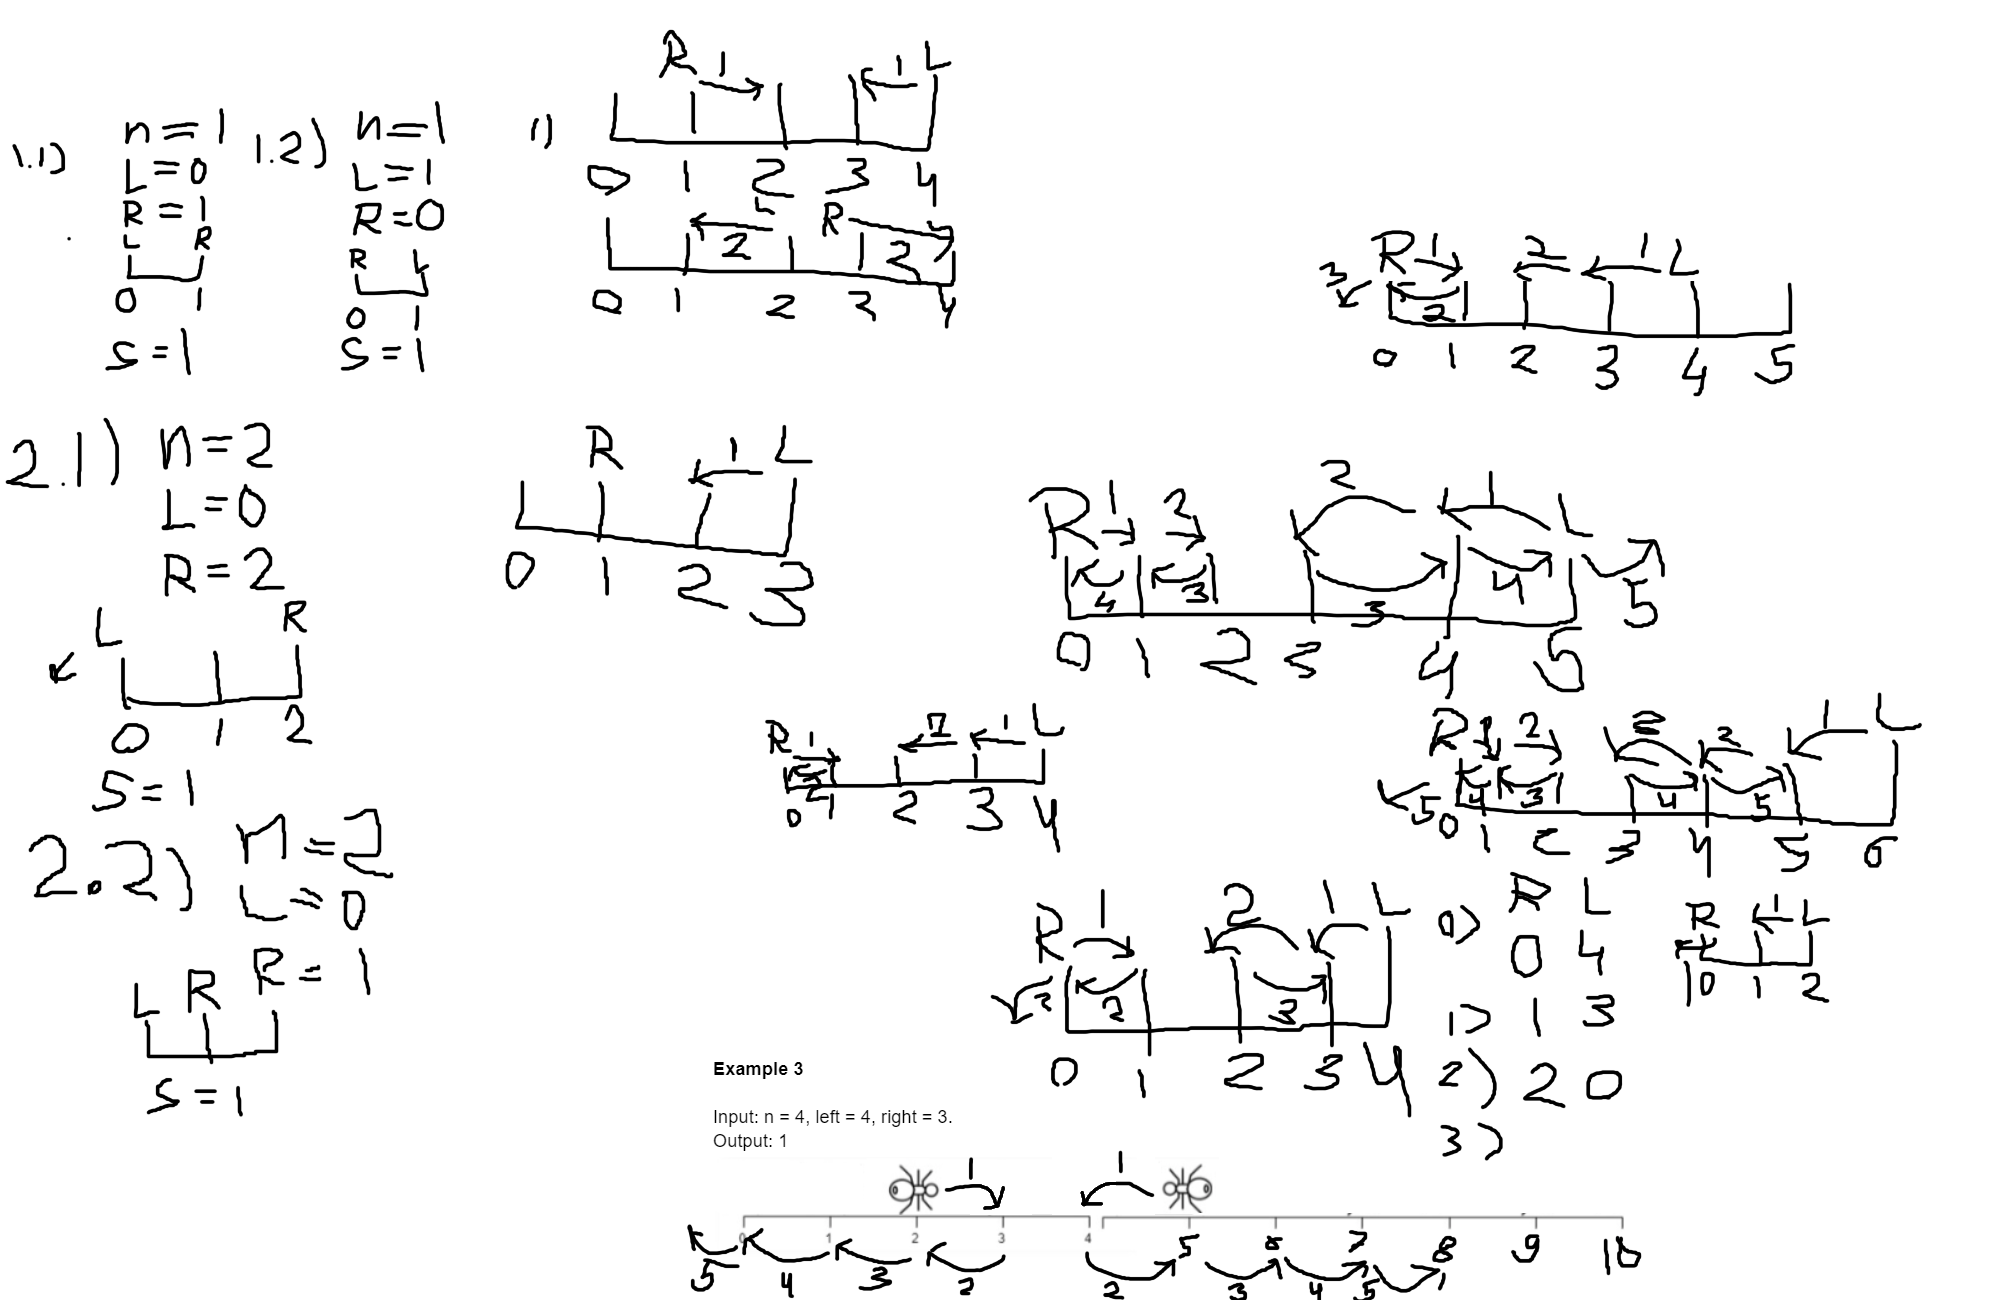 1.1)
n=1
L=0
R=1
L R
0 1
S=1
1.2)
n=1
L=1
R=0
R L
0 1
S=1
1)
R 1 1 L
0 1 2 3 4
L R
2 2
0 1 2 3 4
R 1 2 1 L
3
2
0 1 2 3 4 5
2.1)
n=2
L=0
R=2
L R
0 1 2
S=1
R 1 L
0 1 2 3
R 1 2 2 1 L
4 3 3 4 5
0 1 2 3 4 5
2.2)
n=2
L=0
R=1
L R
S=1
R 1 1 L
0 1 2 3 4
R 2 2 1 L
5 4 3 4 5
0 1 2 3 4 5 6
R 1 2 1 L
2 3
0 1 2 3 4
R L
0) 0 4
1) 1 3
2) 2 0
3)
R 1 L
1 0 1 2
Example 3
Input: n = 4, left = 4, right = 3.
Output: 1
1 1
0 1 2 3 4 5 6 7 8 9 10
5 4 3 2 2 3 4 5